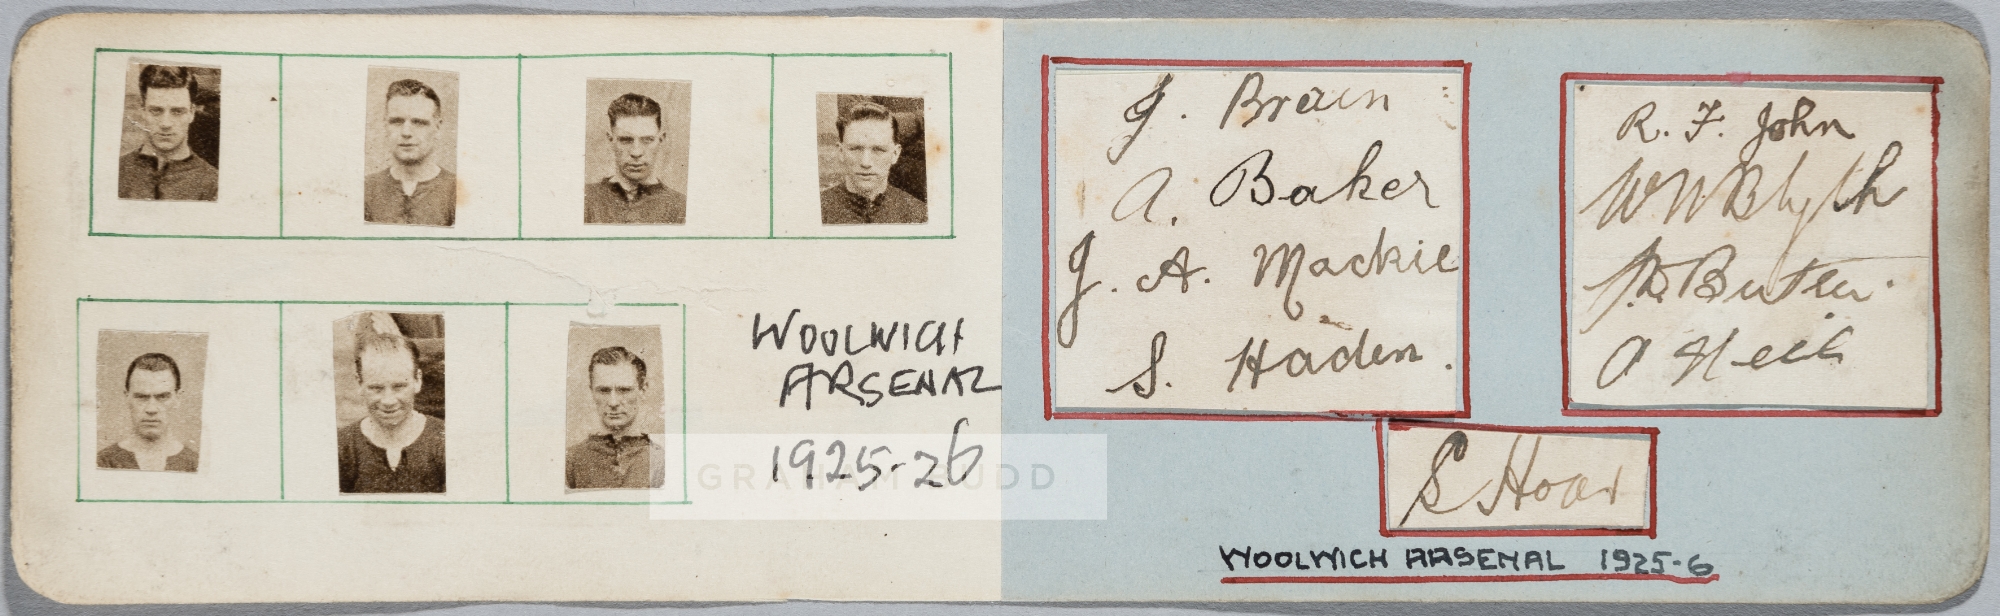 WOOLWICH
ARSENAL
1925-26
GRAHAM BUDD
J. Brain
A. Baker
J. A. Mackie
S. Haden.
R. F. John
W N Blyth
J. D. Butler.
A Neil
S Hoar
WOOLWICH ARSENAL 1925-6